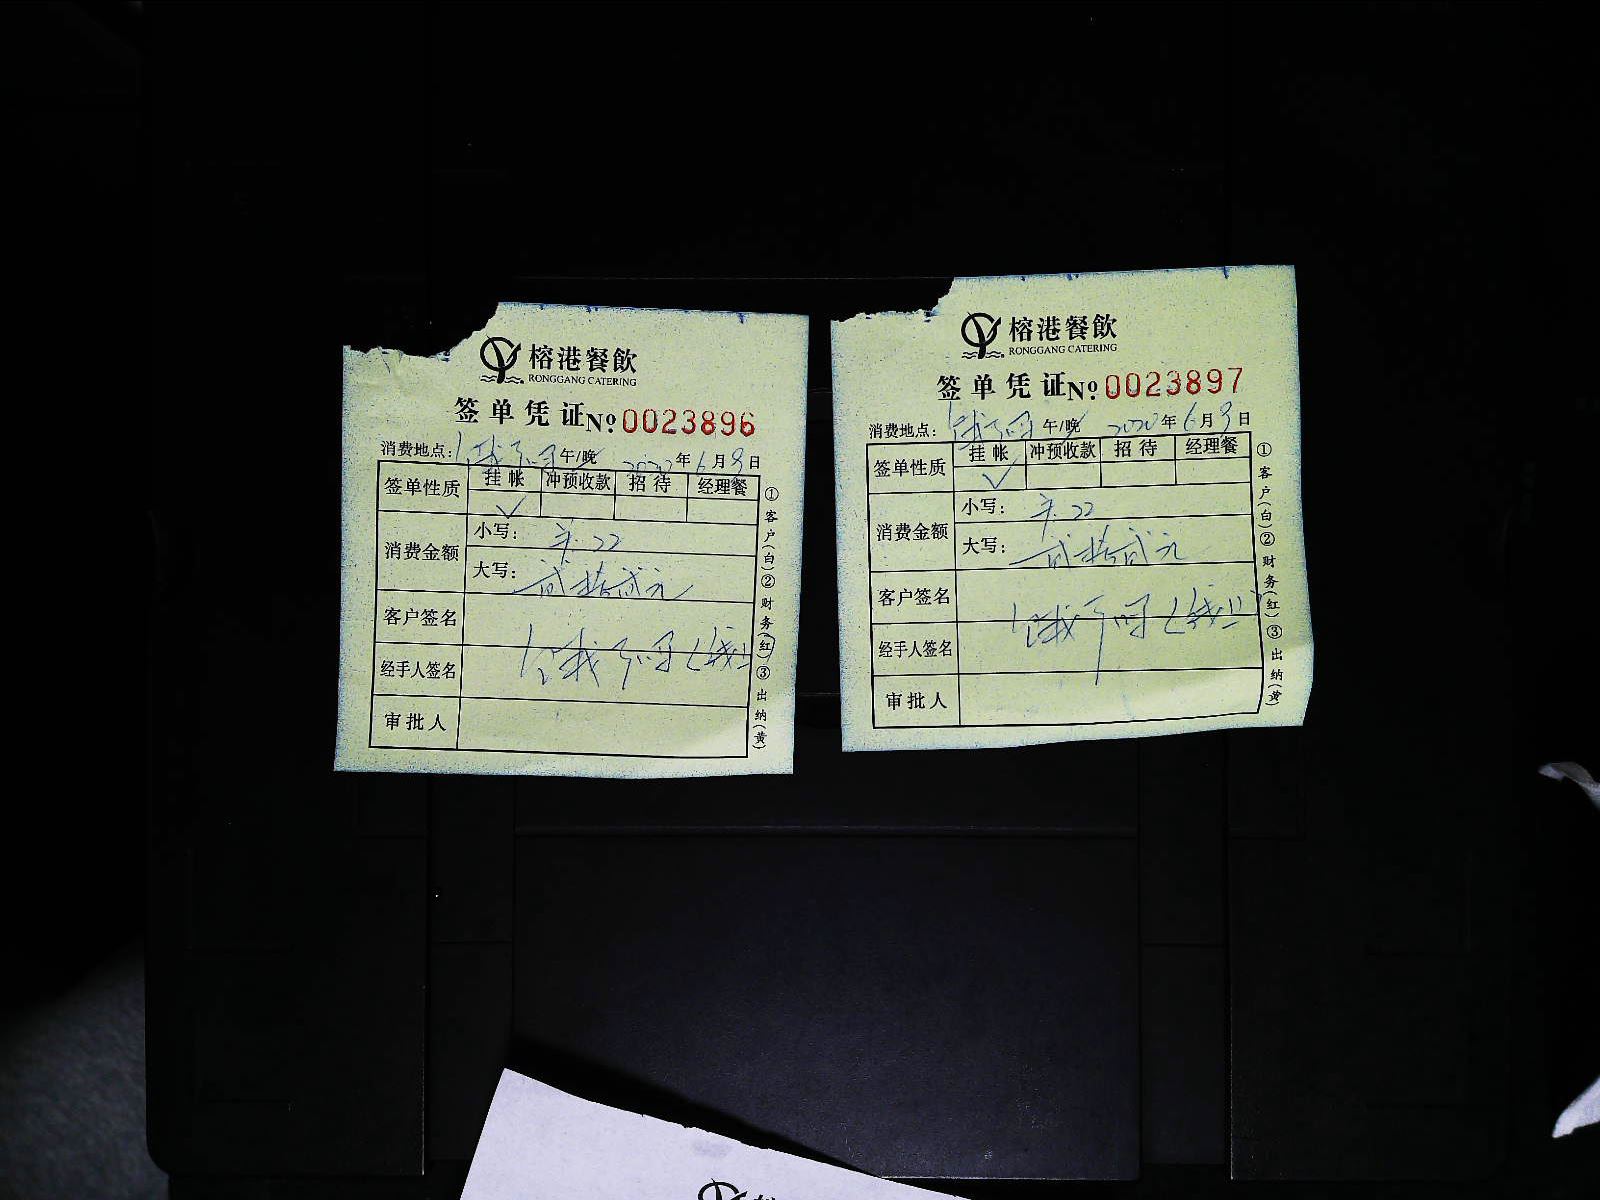 榕港餐飲
RONGGANG CATERING
签单凭证 No 0023896
消费地点: 饿了吗 午/晚 2020年6月9日
签单性质 挂帐 冲预收款 招待 经理餐
✓
消费金额 小写: 羊.22
大写: 贰拾贰元
客户签名
饿了吗
经手人签名
审批人
①客户(白)②财务(红)③出纳(黄)
榕港餐飲
RONGGANG CATERING
签单凭证 No 0023897
消费地点: 饿了吗 午/晚 2020年6月9日
签单性质 挂帐 冲预收款 招待 经理餐
✓
消费金额 小写: 羊.22
大写: 贰拾贰元
客户签名
饿了吗
经手人签名
审批人
①客户(白)②财务(红)③出纳(黄)